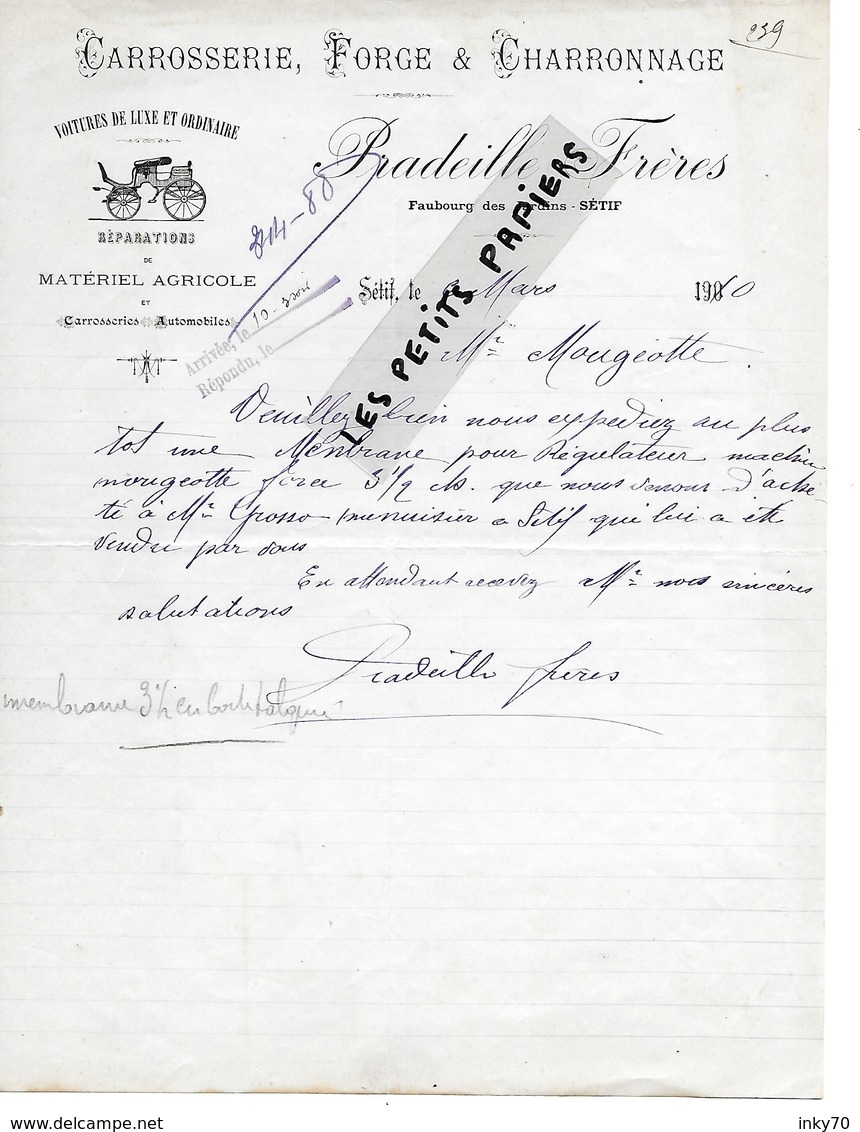 239
CARROSSERIE, FORGE & CHARRONNAGE
VOITURES DE LUXE ET ORDINAIRE
RÉPARATIONS
DE
MATÉRIEL AGRICOLE
ET
Carrosseries Automobiles
Pradeille Frères
Faubourg des Jardins - SÉTIF
314-88
Arrivée, le 10
Répondu, le
Sétif, le Mars 1910
LES PETITS PAPIERS
Mr Mougeotte
Veuillez bien nous expediez au plus
tot une Menbrane pour Régulateur machine
mougeotte force 3 1/2 que nous venons d'ache
té à Mr Grosso menuisier a Sétif qui lui a été
vendu par vous
En attendant recevez Mr nos sincères
salutations
Pradeille frères
membrane 3 1/2 en
www.delcampe.net
inky70